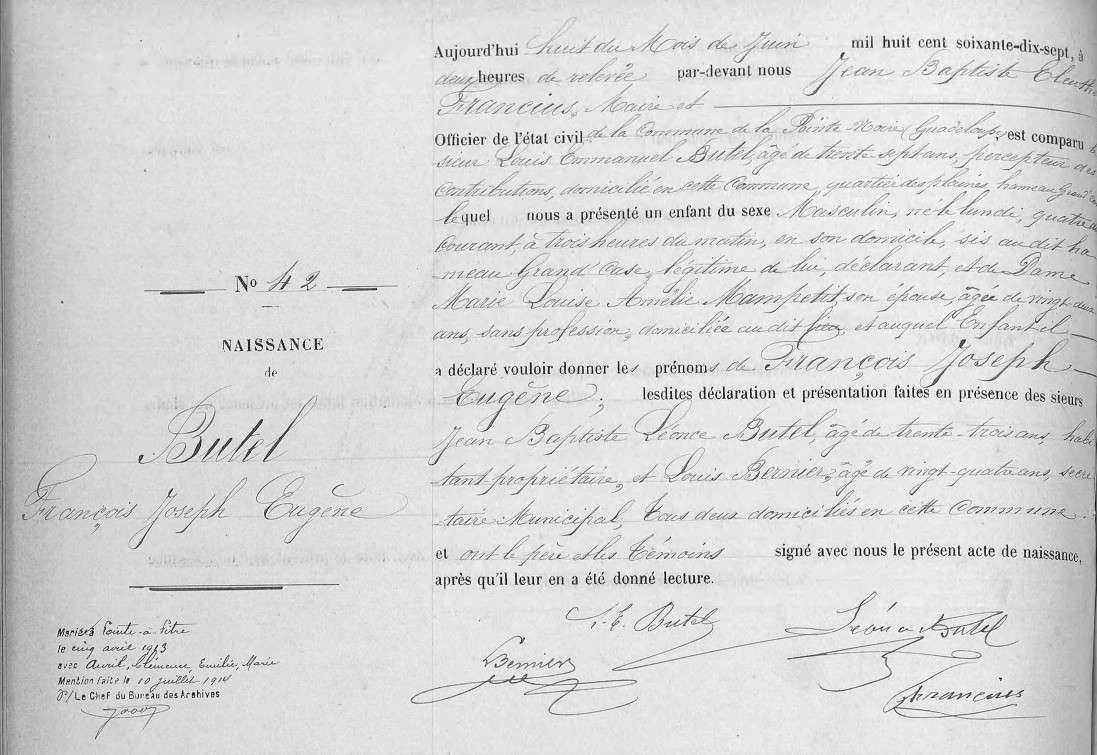 No 42
NAISSANCE
de
Butel
François Joseph Eugène
Marié à Pointe-à-Pitre
le cinq avril 1913
avec Avril, Clémence, Emilie, Marie
Mention faite le 10 juillet 1914
Pr/ Le Chef du Bureau des Archives
Aujourd'hui huit du Mois de Juin mil huit cent soixante-dix-sept, à
deux heures de relevée par-devant nous Jean Baptiste
Francius, Maire et
Officier de l'état civil de la Commune de la Pointe-Noire (Guadeloupe), est comparu le
sieur Louis Emmanuel Butel, âgé de trente sept ans, percepteur des
Contributions, domicilié en cette Commune, quartier des plaines, hameau Grand' Case
lequel nous a présenté un enfant du sexe Masculin, né le lundi, quatre du
Courant, à trois heures du matin, en son domicile, sis au dit ha-
meau Grand' Case, légitime de lui, déclarant, et de Dame
Marie Louise Amélie Mampetit, son épouse, âgée de vingt deux
ans, sans profession, domiciliée au dit lieu, et auquel Enfant il
a déclaré vouloir donner les prénoms de François Joseph
Eugène; lesdites déclaration et présentation faites en présence des sieurs
Jean Baptiste Léonce Butel, âgé de trente-trois ans, habi-
tant propriétaire, et Louis Bernier, âgé de vingt-quatre ans, secré-
taire Municipal, tous deux domiciliés en cette Commune.
et ont le père et les témoins signé avec nous le présent acte de naissance,
après qu'il leur en a été donné lecture.
L. E. Butel
Léonce Butel
Bernier
Francius